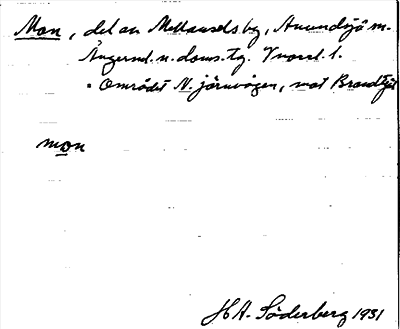 Mon, del av Mellansels by, Anundsjö sn.
Ångerml. n. doms. tg. Vnorrl. l.
Området N. järnvägen, mot Brandtjä
mon
H A. Söderberg 1931